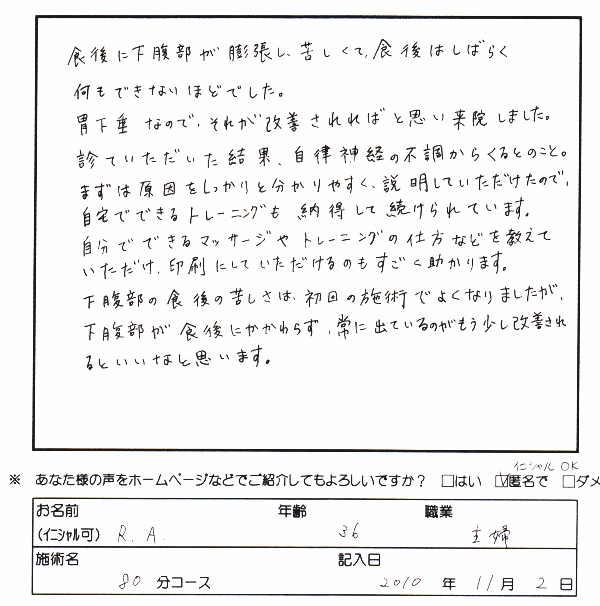 食後に下腹部が膨張し、苦しくて、食後はしばらく
何もできないほどでした。
胃下垂なので、それが改善されればと思い来院しました。
診ていただいた結果、自律神経の不調からくるとのこと。
まずは原因をしっかりと分かりやすく、説明していただけたので、
自宅でできるトレーニングも納得して続けられています。
自分でできるマッサージやトレーニングの仕方などを教えて
いただけ、印刷にしていただけるのもすごく助かります。
下腹部の食後の苦しさは、初回の施術でよくなりましたが、
下腹部が食後にかかわらず、常に出ているのがもう少し改善され
るといいなと思います。
イニシャルOK
※ あなた様の声をホームページなどでご紹介してもよろしいですか？ □はい ☑匿名で □ダメ
お名前 (イニシャル可) R.A. 年齢 36 職業 主婦
施術名 80 分コース 記入日 2010 年 11月 2 日